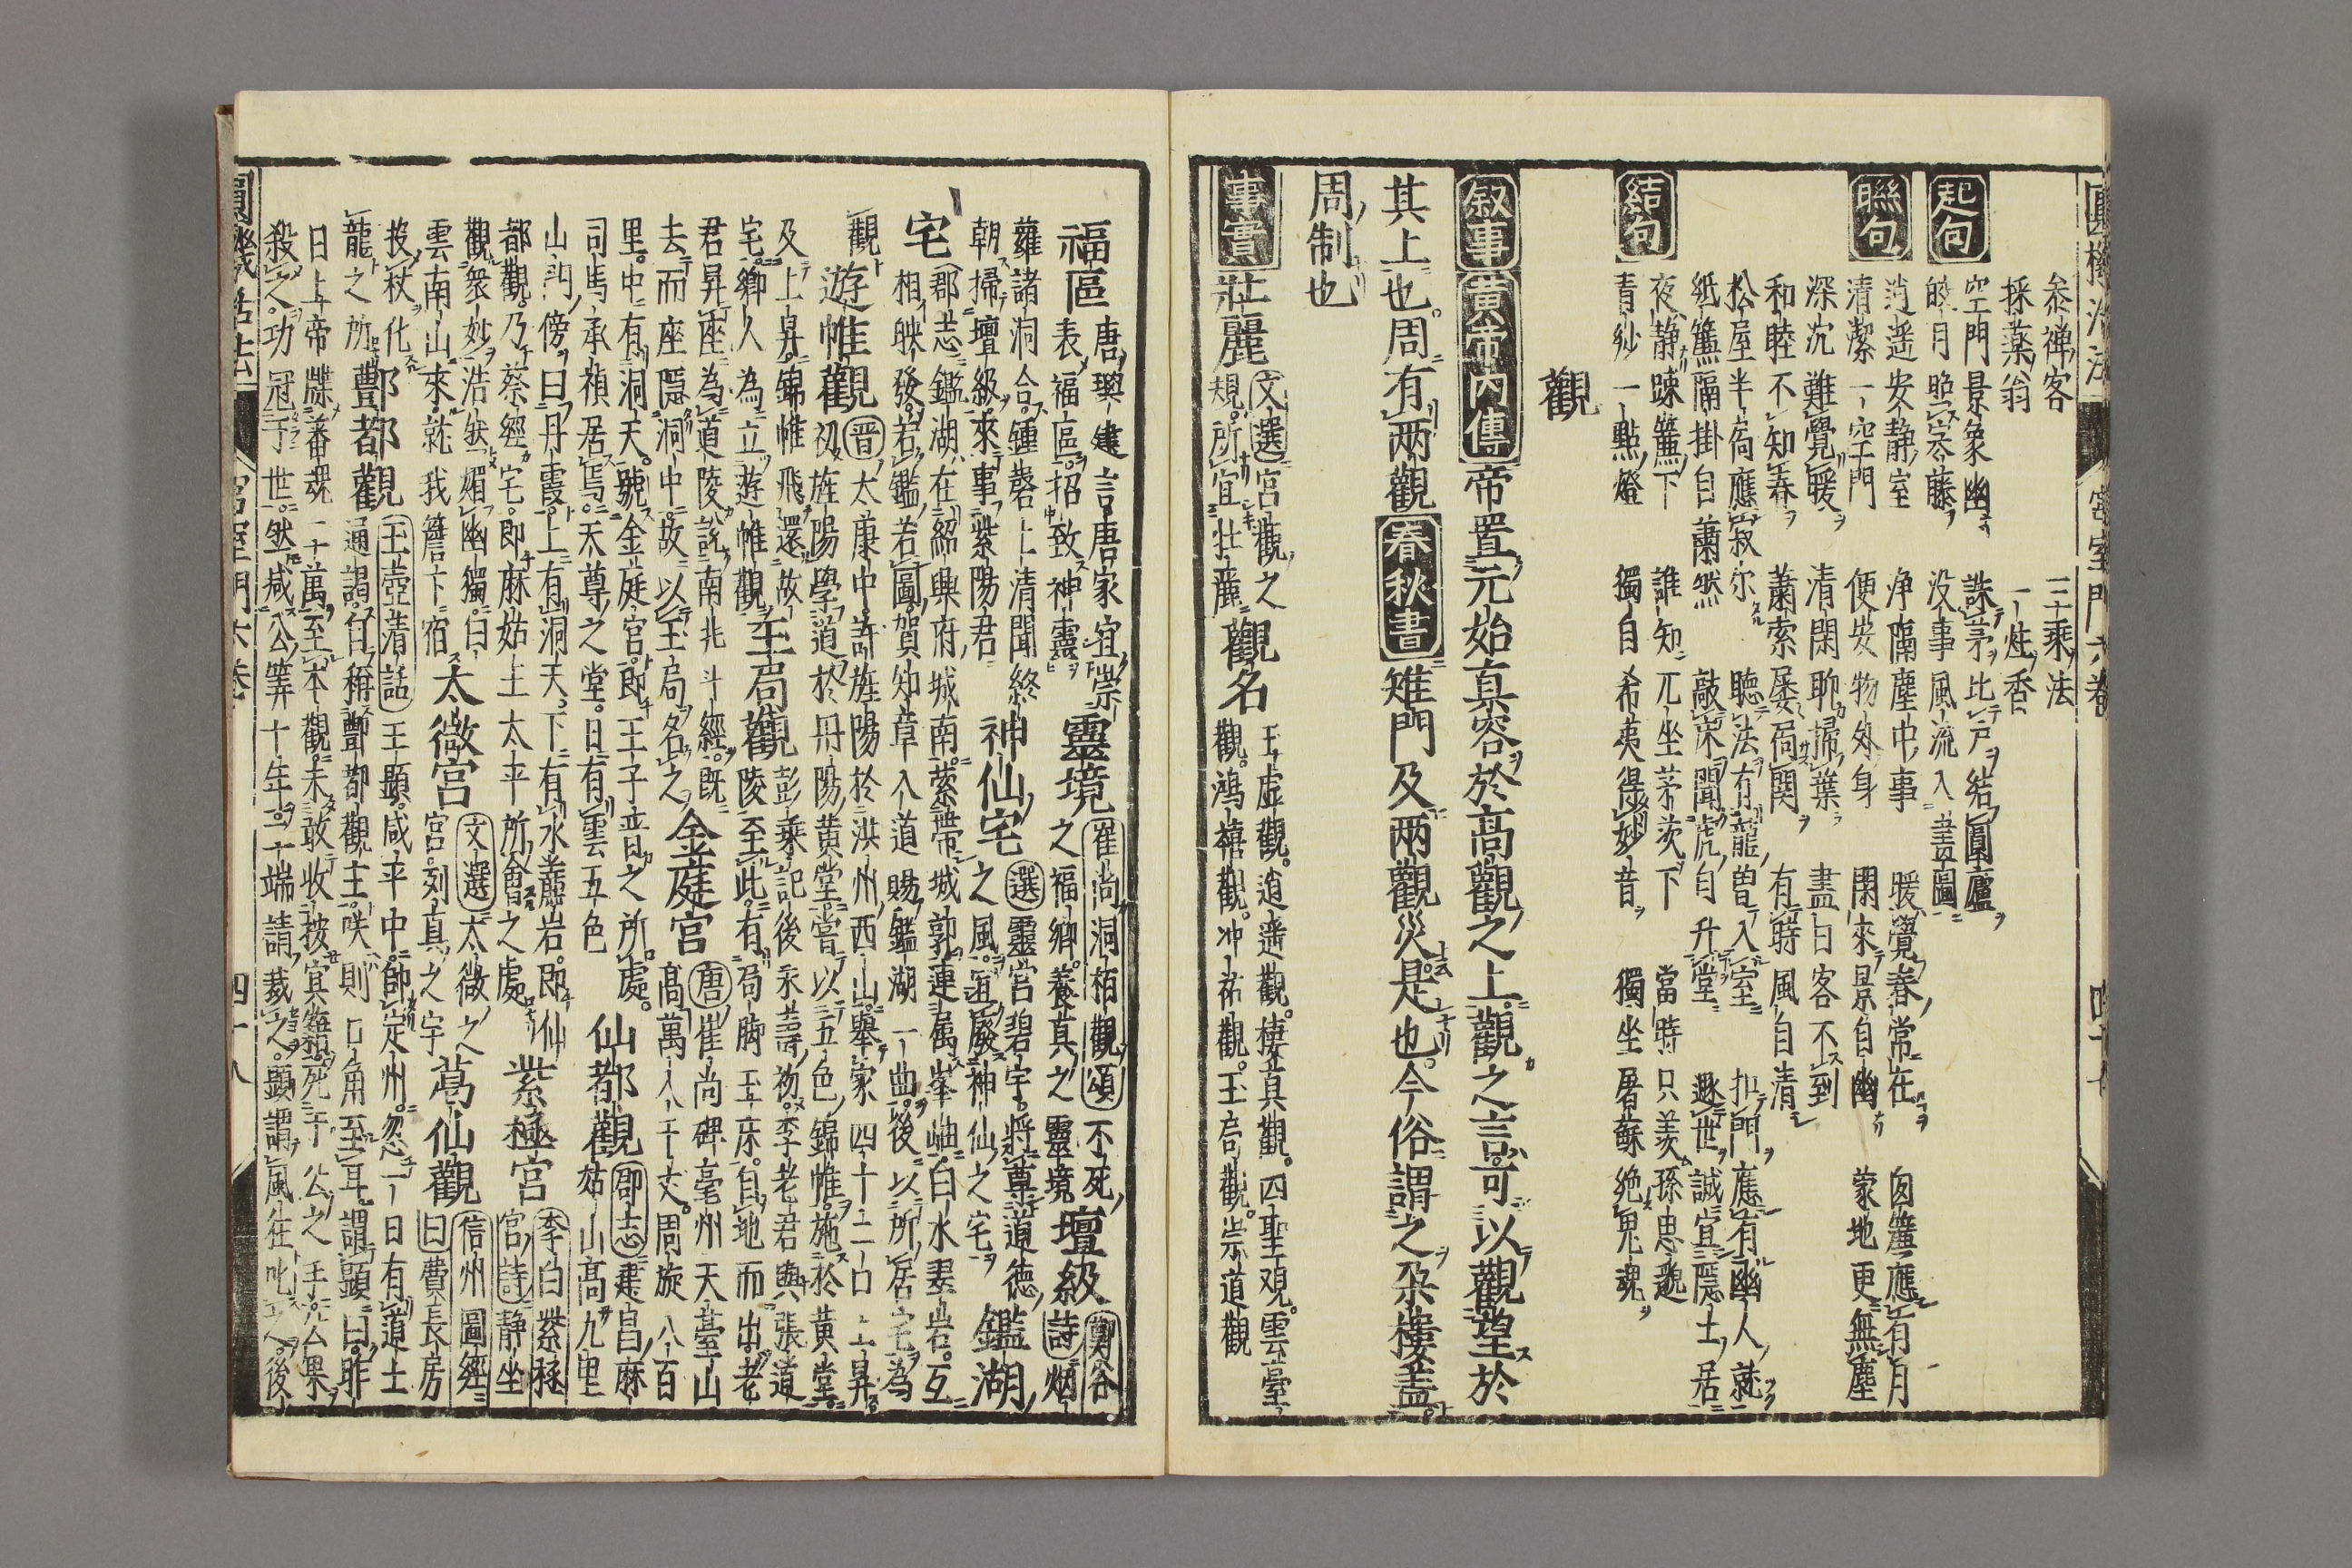 参禅客
三乘法
採藥翁
一炷香
起句
空門景象幽
誅茅比戸結圓廬
皎月照寒藤
没事風流入畫圖
聯句
逍遥安静室
浄隔塵中事
暖覺春常在
囪簾應有月
清潔一空門
便安物外身
閑來景自幽
蒙地更無塵
深沉難覺暖
清閑聊掃葉
盡日客不到
和睦不知春
蕭索屡扃関
有時風自清
松屋半窓應寂尓
聴法有龍曽入室
扣門應有幽人就
紙簾隔掛自蕭然
敲床聞虎自升堂
遯世誠宜隠士居
結句
夜静踈簾下
誰知兀坐茅茨下
當時只羨孫思邈
青紗一點燈
獨自希夷得妙音
獨坐屠蘇絶鬼魂
觀
叙事 黄帝内傳 帝置元始真容於高觀之上觀之言可以觀望於
其上也周有两觀 春秋書 雉門及两觀災是也今俗謂之朶樓盖
周制也
事實 壯麗 文選宫觀之
規所宜壮麗 觀名 玉虚觀逍遥觀棲真觀四聖観雲臺
觀鴻禧觀冲祐觀玉局觀崇道觀
福區 唐興建言唐家宜崇
表福區招致神靈 靈境 崔尚洞栢觀頌不死
之福鄉養真之靈境 壇級 鄭谷
詩烟
蘿諸洞合鍾磬上清聞終
朝掃壇級來事紫陽君 神仙宅 選靈宫碧宇將尊道徳
之風宜廢神仙之宅 鑑湖
宅 郡志鑑湖在紹興府城南縈帶城郭連属峯岫白水翠岩互
相映發若鑑若圖賀知章入道賜鑑湖一曲後以所居宅為
觀 遊帷觀 晋太康中許旌陽於洪州西山舉家四十二口上昇
初旌陽學道於丹陽黄堂嘗以五色錦帷施於黄堂
及上昇錦帷飛還故
宅鄉人為立遊帷觀 玉局觀 彭乘記後永壽初李老君與張道
陵至此有局脚玉床自地而出老
君昇座為道陵說南北斗經既
去而座隠洞中故以玉局名之 金庭宫 唐崔尚碑亳州天臺山
高萬八千丈周旋八百
里中有洞天號金庭宫即王子晋之所處
司馬承禎居焉天尊之堂日有雲五色 仙都觀 郡志建昌麻
姑山高九里
山門傍曰丹霞上有洞天下有水簾岩即仙
都觀乃蔡經宅即麻姑王太平所會之處 紫極宫 李白紫極
宫詩静坐
觀衆妙浩然媚幽獨白
雲南山來就我簷下宿 太微宫 文選太微之
宫列真之宇 葛仙觀 信州圖經
曰費長房
投杖化
龍之所 酆都觀 玉壺清話王顯咸平中帥定州忽一日有道士
通謁自稱酆都觀主咲則口角至耳謂顯曰昨
日上帝牒蕃魂二十萬至本觀未敢收按冥籍死于公之手公果
殺之功冠于世然减公筭十年二端請裁之顯謂風狂叱之後
宫室門六巻
四十八